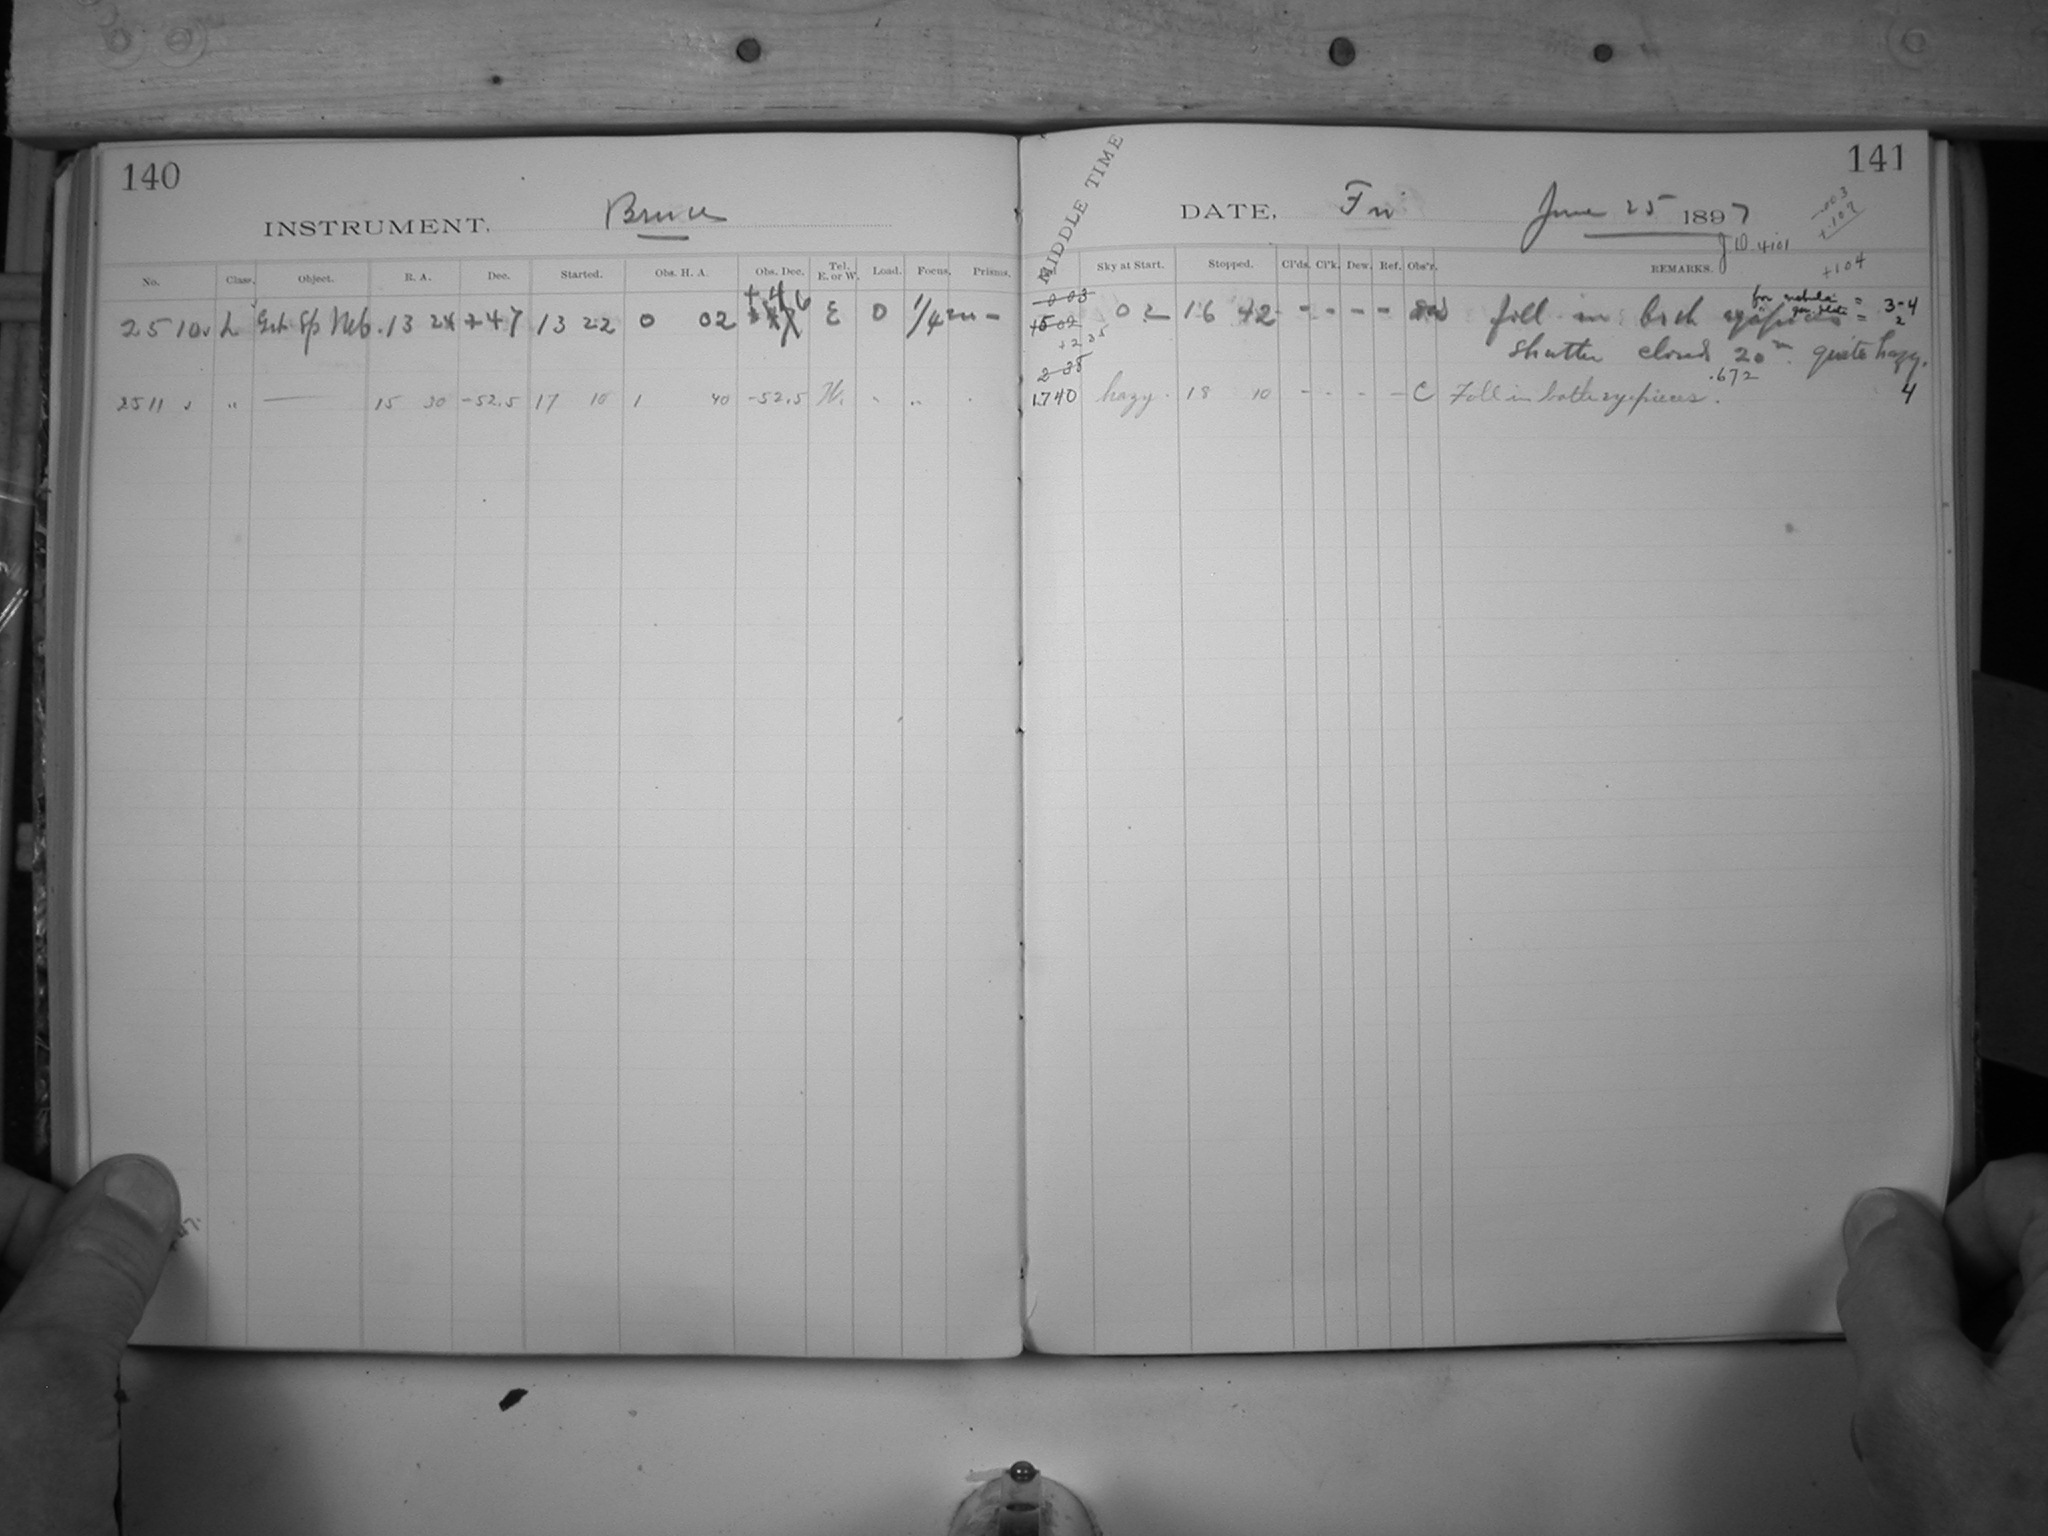 140
INSTRUMENT. Bruce
No. Class. Object. R. A. Dec. Started. Obs. H. A. Obs. Dec. Tel. E. or W. Load. Focus. Prisms.
+46
2510 L Grt Sp Neb. 13 24 +47 13 22 0 02 E 0 1/4 m –
2511 " —— 15 30 -52.5 17 10 1 40 -52.5 W.
141
MIDDLE TIME
DATE, Fri June 25 1897
JD 4101
+104
Sky at Start. Stopped. Cl'ds. Cl'k. Dew. Ref. Obs'r. REMARKS.
0 03
15 02 0 2 16 42 - - - - foll in both eyepieces
for nebula = 3-4
= 2
+2 35
shutter closed 20m. quite hazy.
2 35
.672
1740 hazy. 18 10 - - - - C Foll in both eyepieces. 4